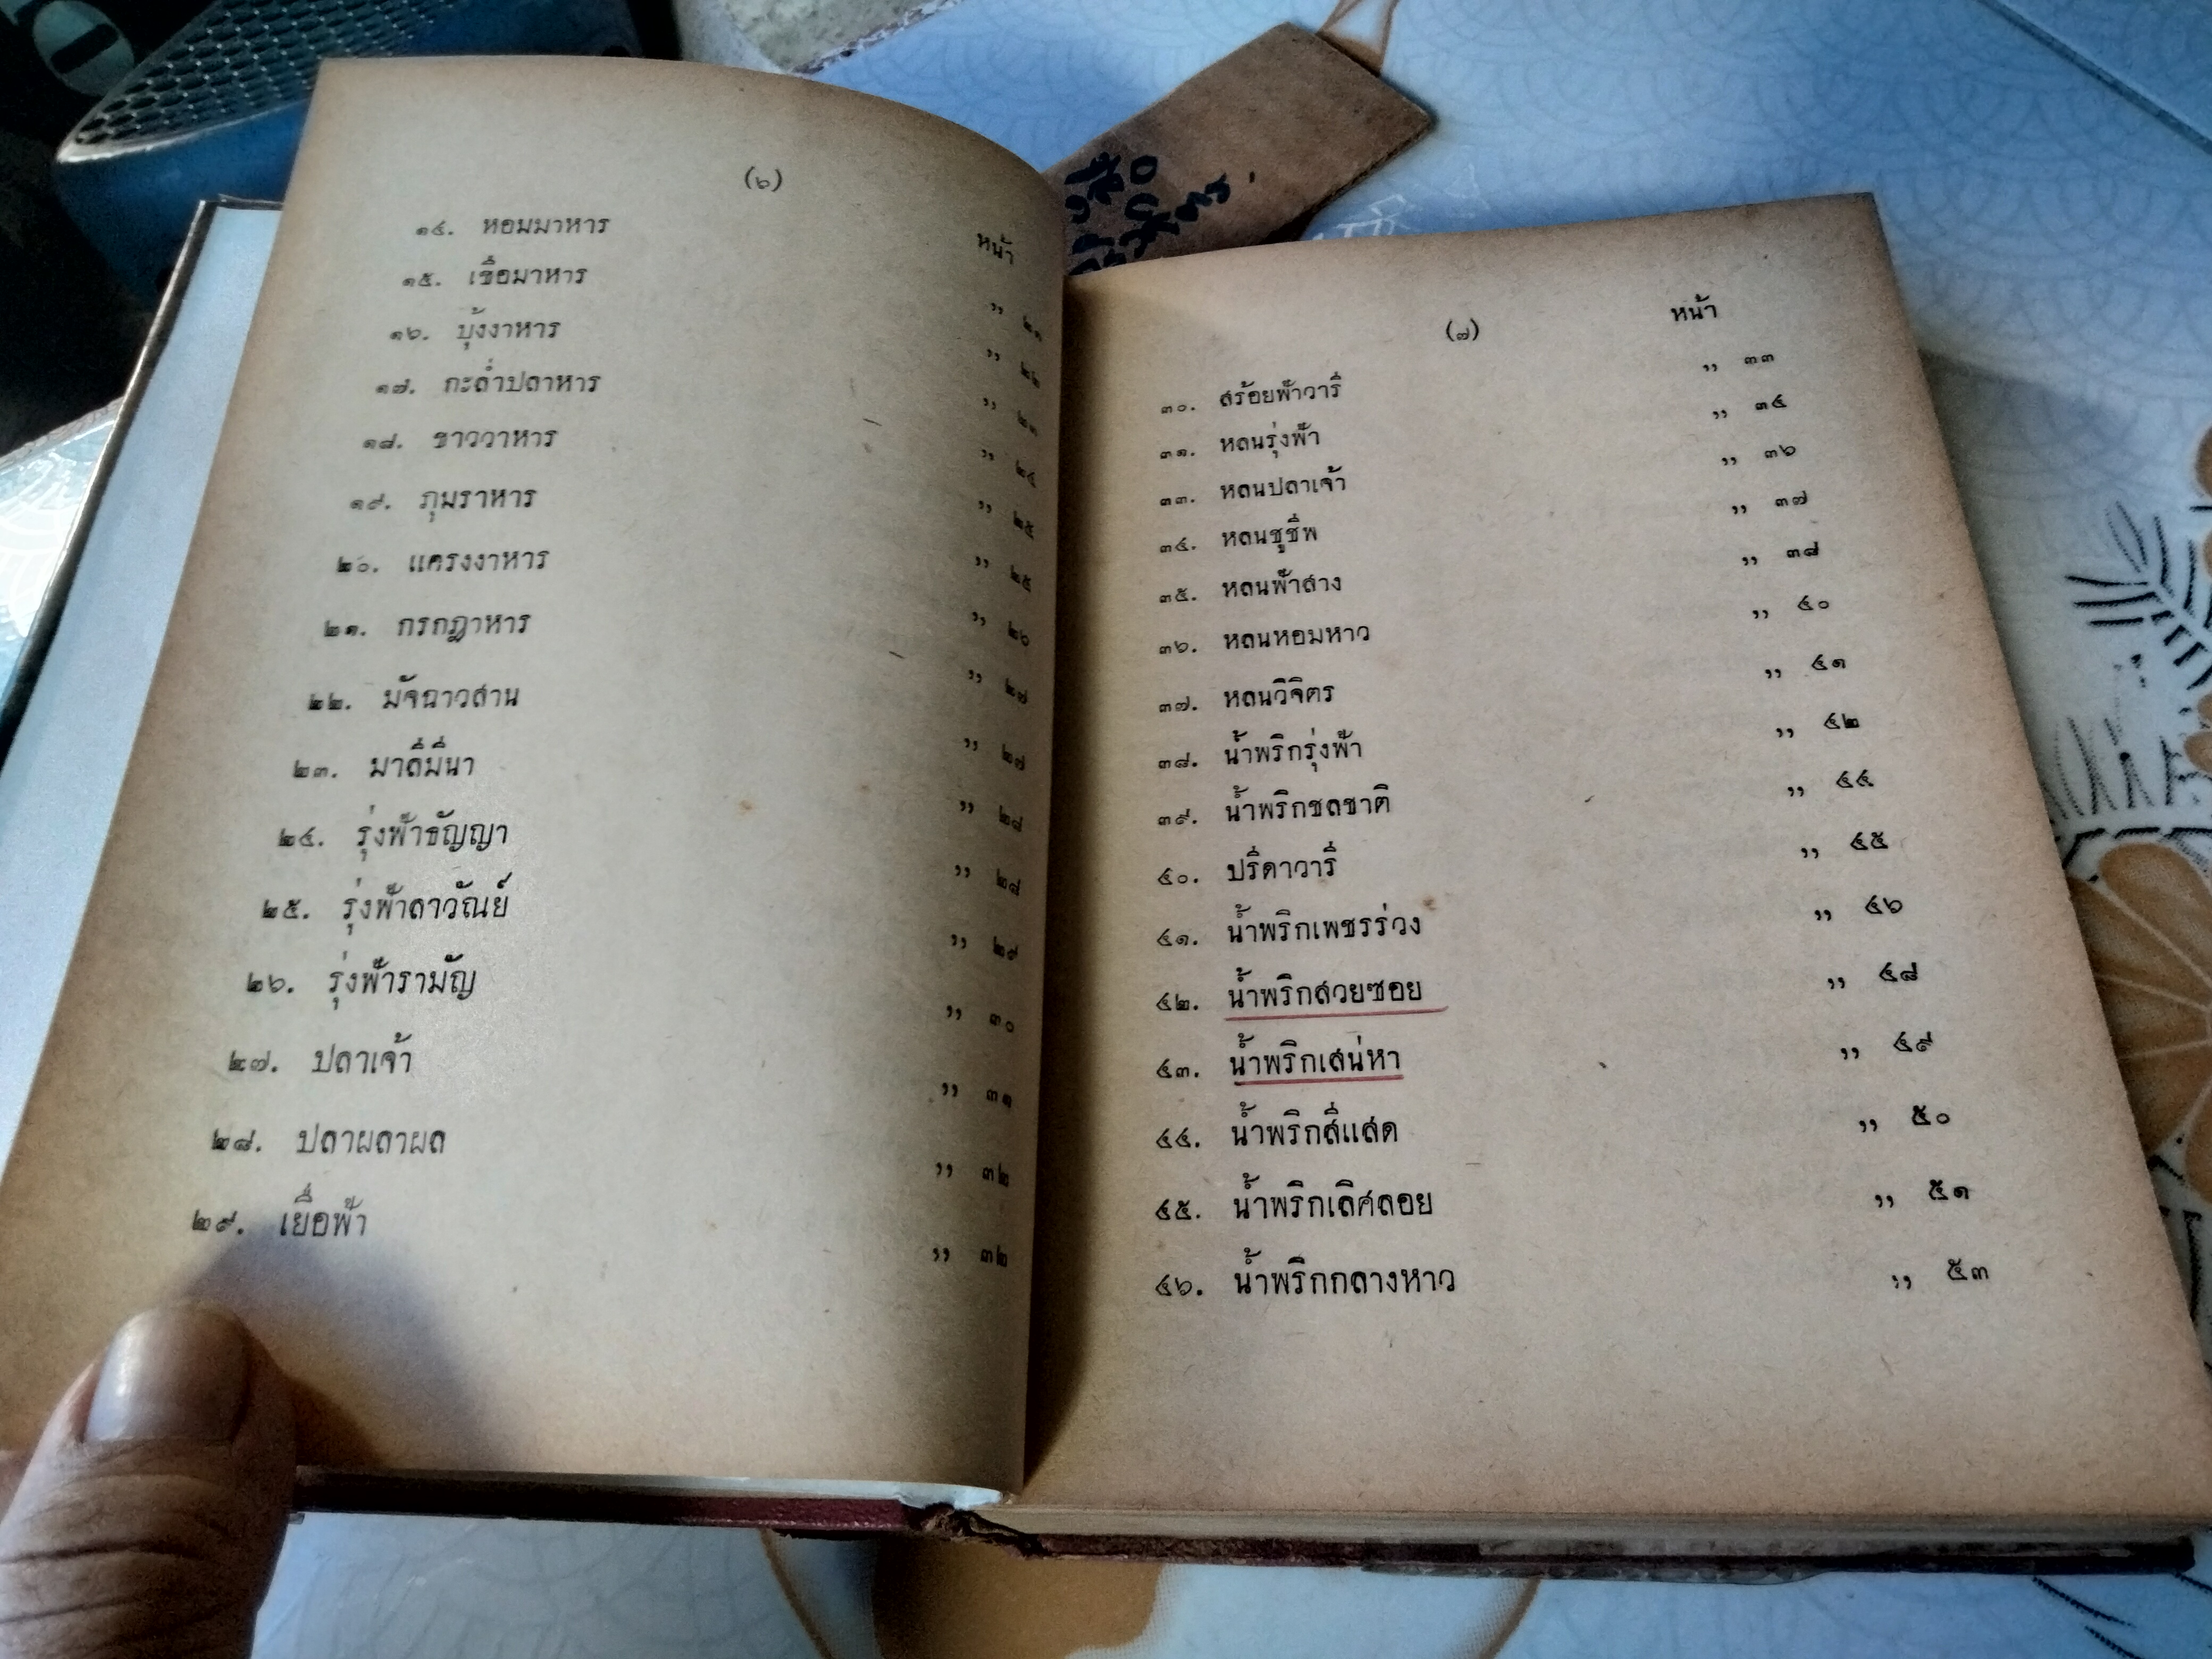 (๖)
หน้า
๑๔. หอมมาหาร ,, ๒๑
๑๕. เชื้อมาหาร ,, ๒๒
๑๖. บุ้งงาหาร ,, ๒๓
๑๗. กะล่ำปลาหาร ,, ๒๔
๑๘. ขาววาหาร ,, ๒๕
๑๙. ภุมราหาร ,, ๒๕
๒๐. แครงงาหาร ,, ๒๖
๒๑. กรกฎาหาร ,, ๒๗
๒๒. มัจฉาวสาน ,, ๒๗
๒๓. มาลีมีนา ,, ๒๘
๒๔. รุ่งฟ้าธัญญา ,, ๒๘
๒๕. รุ่งฟ้าลาวัณย์ ,, ๒๙
๒๖. รุ่งฟ้ารามัญ ,, ๓๐
๒๗. ปลาเจ้า ,, ๓๑
๒๘. ปลาผลาผล ,, ๓๒
๒๙. เยื่อฟ้า ,, ๓๒
(๗)
หน้า
๓๐. สร้อยฟ้าวารี ,, ๓๓
๓๑. หลนรุ่งฟ้า ,, ๓๔
๓๓. หลนปลาเจ้า ,, ๓๖
๓๔. หลนชูชีพ ,, ๓๗
๓๕. หลนฟ้าสาง ,, ๓๘
๓๖. หลนหอมหาว ,, ๔๐
๓๗. หลนวิจิตร ,, ๔๑
๓๘. น้ำพริกรุ่งฟ้า ,, ๔๒
๓๙. น้ำพริกชลชาติ ,, ๔๔
๔๐. ปรีดาวารี ,, ๔๕
๔๑. น้ำพริกเพชรร่วง ,, ๔๖
๔๒. น้ำพริกสวยซอย ,, ๔๘
๔๓. น้ำพริกเสน่หา ,, ๔๙
๔๔. น้ำพริกสีแสด ,, ๕๐
๔๕. น้ำพริกเลิศลอย ,, ๕๑
๔๖. น้ำพริกกลางหาว ,, ๕๓